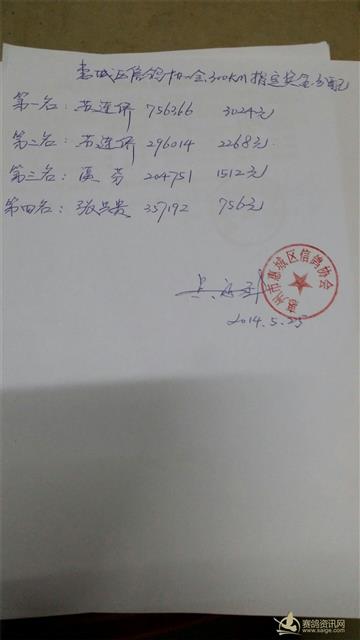 惠城区信鸽协会300KM指定奖金分配
第一名：苏连侨 756366 3024元
第二名：苏连侨 296014 2268元
第三名：芬 204751 1512元
第四名：张贵 357192 756元
惠州市惠城区信鸽协会
2014.5.25
赛鸽资讯网
www.saige.com